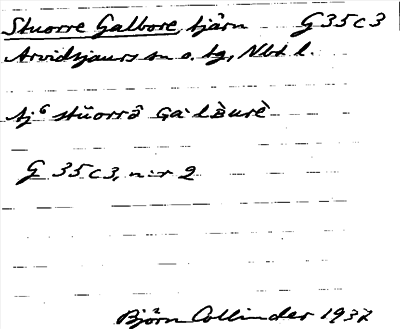 Stuorre Galbore, tjärn G 35 c 3
Arvidsjaurs sn o. tg, Nbt l.
tj⁶ stŭorrō̂ ga·lʙ̀urè
G 35 c 3, n:r 2
Björn Collinder 1937